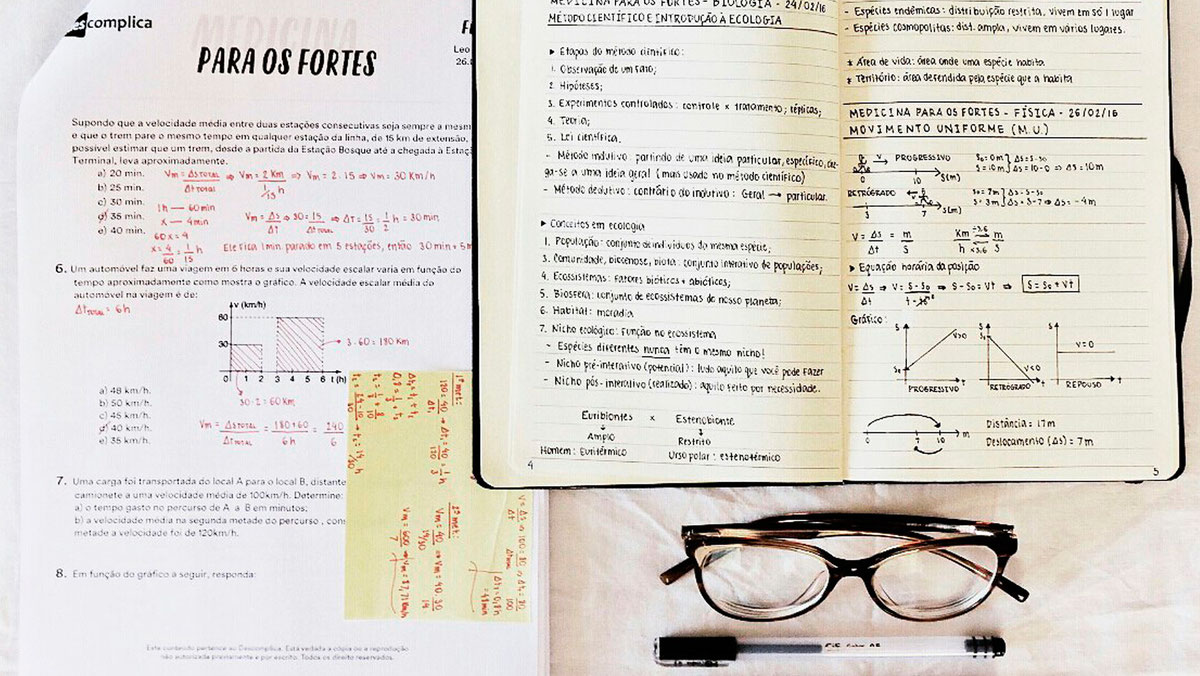 complica
MEDICINA
PARA OS FORTES
Leo
26.
Supondo que a velocidade média entre duas estações consecutivas seja sempre a mesm
e que o trem pare o mesmo tempo em qualquer estação da linha, de 15 km de extensão,
possível estimar que um trem, desde a partida da Estação Bosque até a chegada à Estaç
Terminal, leva aproximadamente.
a) 20 min.
b) 25 min.
c) 30 min.
d) 35 min.
e) 40 min.
Vm = ΔS TOTAL / Δt TOTAL ⇒ Vm = 2 Km / 1/15 h ⇒ Vm = 2 · 15 ⇒ Vm = 30 Km/h
1h — 60min
x — 4min
60x = 4
x = 4/60 = 1/15 h
Vm = Δs/Δt ⇒ 30 = 15/Δt TOTAL ⇒ ΔT = 15/30 = 1/2 h = 30 min
Ele fica 1 min parado em 5 estações, então 30 min + 5 m
6. Um automóvel faz uma viagem em 6 horas e sua velocidade escalar varia em função do
tempo aproximadamente como mostra o gráfico. A velocidade escalar média do
automóvel na viagem é de:
Δt TOTAL = 6h
v (km/h)
60
30
0 1 2 3 4 5 6 t (h)
3 · 60 = 180 Km
30 · 2 = 60 Km
a) 48 km/h.
b) 50 km/h.
c) 45 km/h.
d) 40 km/h.
e) 35 km/h.
Vm = ΔS TOTAL / Δt TOTAL = 180+60 / 6h = 240 / 6
7. Uma carga foi transportada do local A para o local B, distante
camionete a uma velocidade média de 100km/h. Determine:
a) o tempo gasto no percurso de A a B em minutos;
b) a velocidade média na segunda metade do percurso , con
metade a velocidade foi de 120km/h.
8. Em função do gráfico a seguir, responda:
Este conteúdo pertence ao Descomplica. Está vedada a cópia ou a reprodução
não autorizada previamente e por escrito. Todos os direitos reservados.
1º met:
2º met:
MEDICINA PARA OS FORTES - BIOLOGIA - 24/02/16
MÉTODO CIENTÍFICO E INTRODUÇÃO À ECOLOGIA
▸ Etapas do método científico:
1. Observação de um fato;
2. Hipóteses;
3. Experimentos controlados: controle x tratamento; réplicas;
4. Teoria;
5. Lei científica.
- Método indutivo: partindo de uma ideia particular, específico, che-
ga-se a uma ideia geral (mais usado no método científico)
- Método dedutivo: contrário do indutivo: Geral → particular.
▸ Conceitos em ecologia
1. População: conjunto de indivíduos da mesma espécie;
3. Comunidade, biocenose, biota: conjunto interativo de populações;
4. Ecossistemas: fatores bióticos + abióticos;
5. Biosfera: conjunto de ecossistemas do nosso planeta;
6. Habitat: moradia
7. Nicho ecológico: função no ecossistema
- Espécies diferentes nunca têm o mesmo nicho!
- Nicho pré-interativo (potencial): tudo aquilo que você pode fazer
- Nicho pós-interativo (realizado): aquilo feito por necessidade.
Euribiontes x Estenobionte
↓ ↓
Amplo Restrito
Homem: Euritérmico Urso polar: estenotérmico
4
- Espécies endêmicas: distribuição restrita, vivem em só 1 lugar
- Espécies cosmopolitas: dist. ampla, vivem em vários lugares.
* Área de vida: área onde uma espécie habita
* Território: área defendida pela espécie que a habita
MEDICINA PARA OS FORTES - FÍSICA - 26/02/16
MOVIMENTO UNIFORME (M.U.)
V PROGRESSIVO S0 = 0m } Δs = S-S0
0 10 S(m) S = 10m } Δs = 10-0 ⇒ Δs = 10m
RETRÓGRADO S0 = 7m } Δs = S-S0
3 7 S(m) S = 3m } Δs = 3-7 ⇒ Δs = -4m
V = Δs/Δt = m/s Km/h ÷3.6 x3.6 m/s
▸ Equação horária da posição
V = Δs/Δt ⇒ V = S-S0/t-t0 ⇒ S-S0 = Vt ⇒ S = S0 + Vt
Gráfico:
S S S
S0 V>0 S0 V<0 V=0
t t t
PROGRESSIVO RETRÓGRADO REPOUSO
0 7 10 m
Distância = 17m
Deslocamento (Δs) = 7m
5